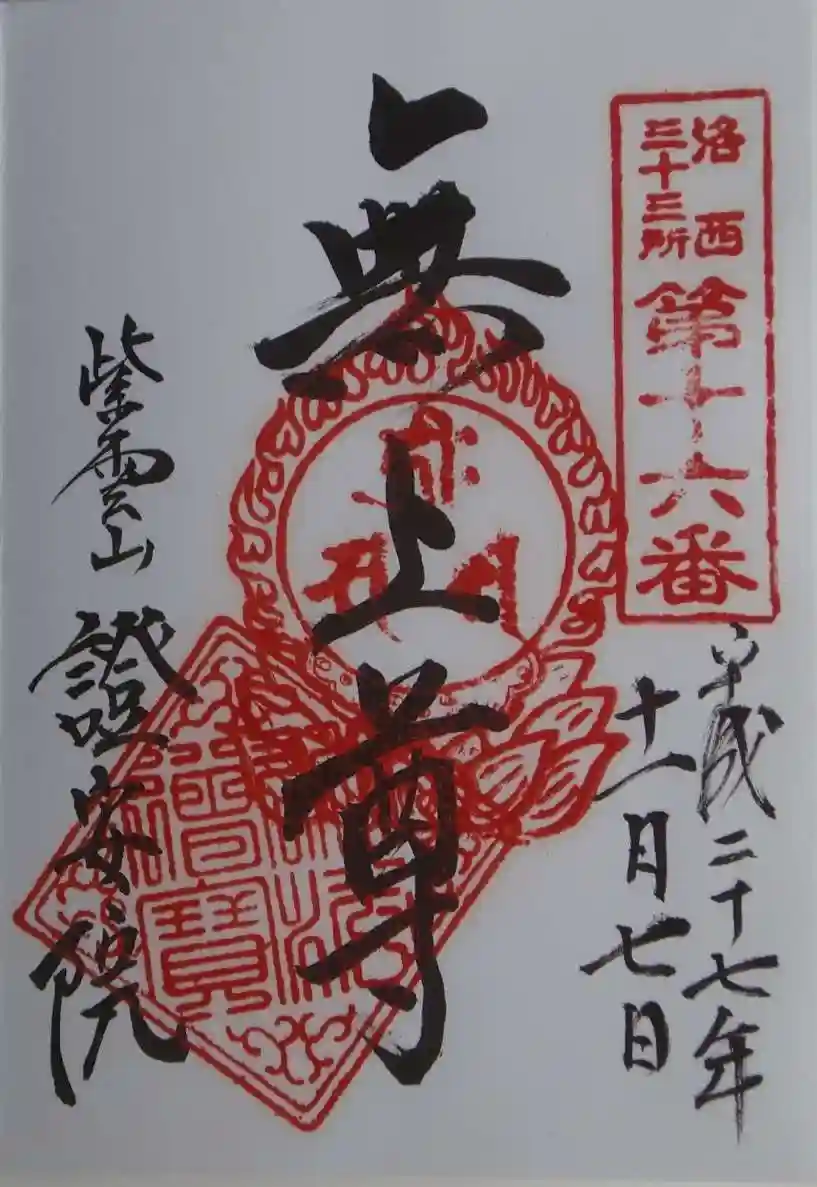 洛西
三十三所
第十六番
平成二十七年
十一月七日
無上尊
紫雲山
證安院